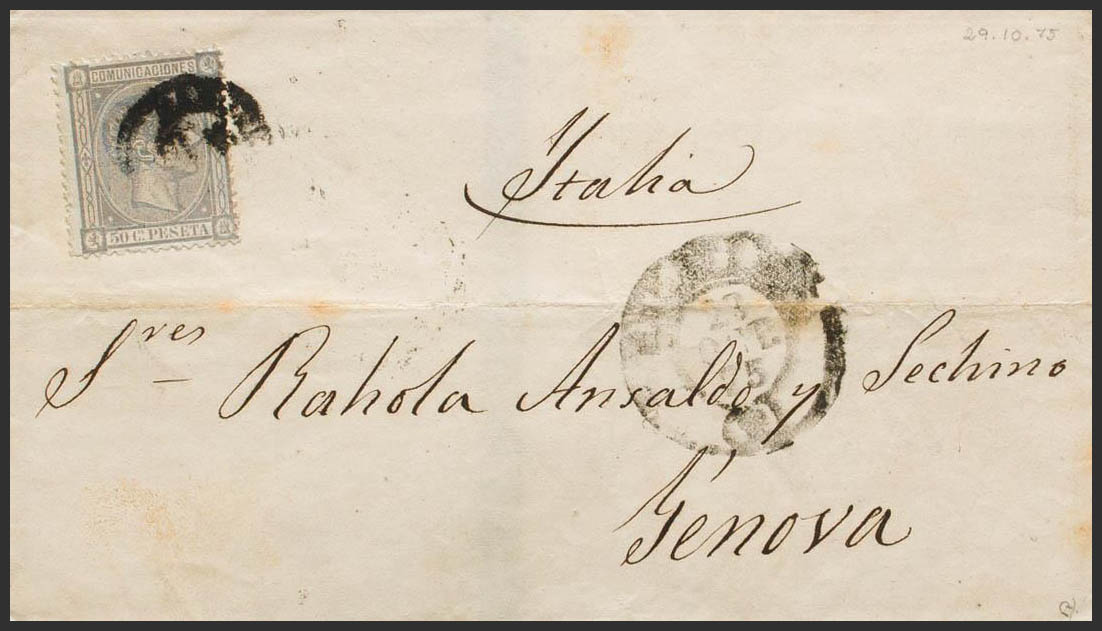 29.10.75
COMUNICACIONES
50 Cs. PESETA
Italia
Sres Rahola Ansaldo y Sechino
Génova